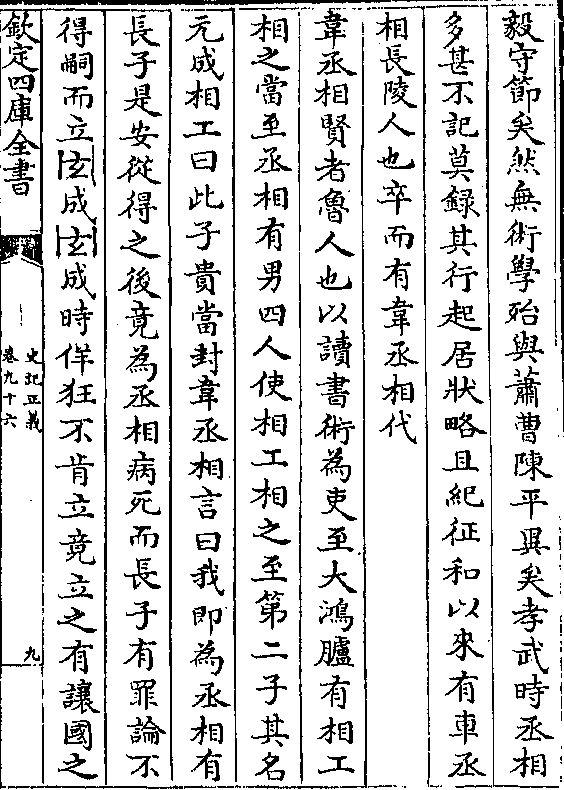 毅守節矣然無術學殆與蕭曹陳平異矣孝武時丞相
多甚不記莫録其行起居狀略且紀征和以來有車丞
相長陵人也卒而有韋丞相代
韋丞相賢者魯人也以讀書術為吏至大鴻臚有相工
相之當至丞相有男四人使相工相之至第二子其名
元成相工曰此子貴當封韋丞相言曰我即為丞相有
長子是安從得之後竟為丞相病死而長子有罪論不
得嗣而立玄成玄成時佯狂不肯立竟立之有讓國之
欽定四庫全書
史記正義
卷九十六
九